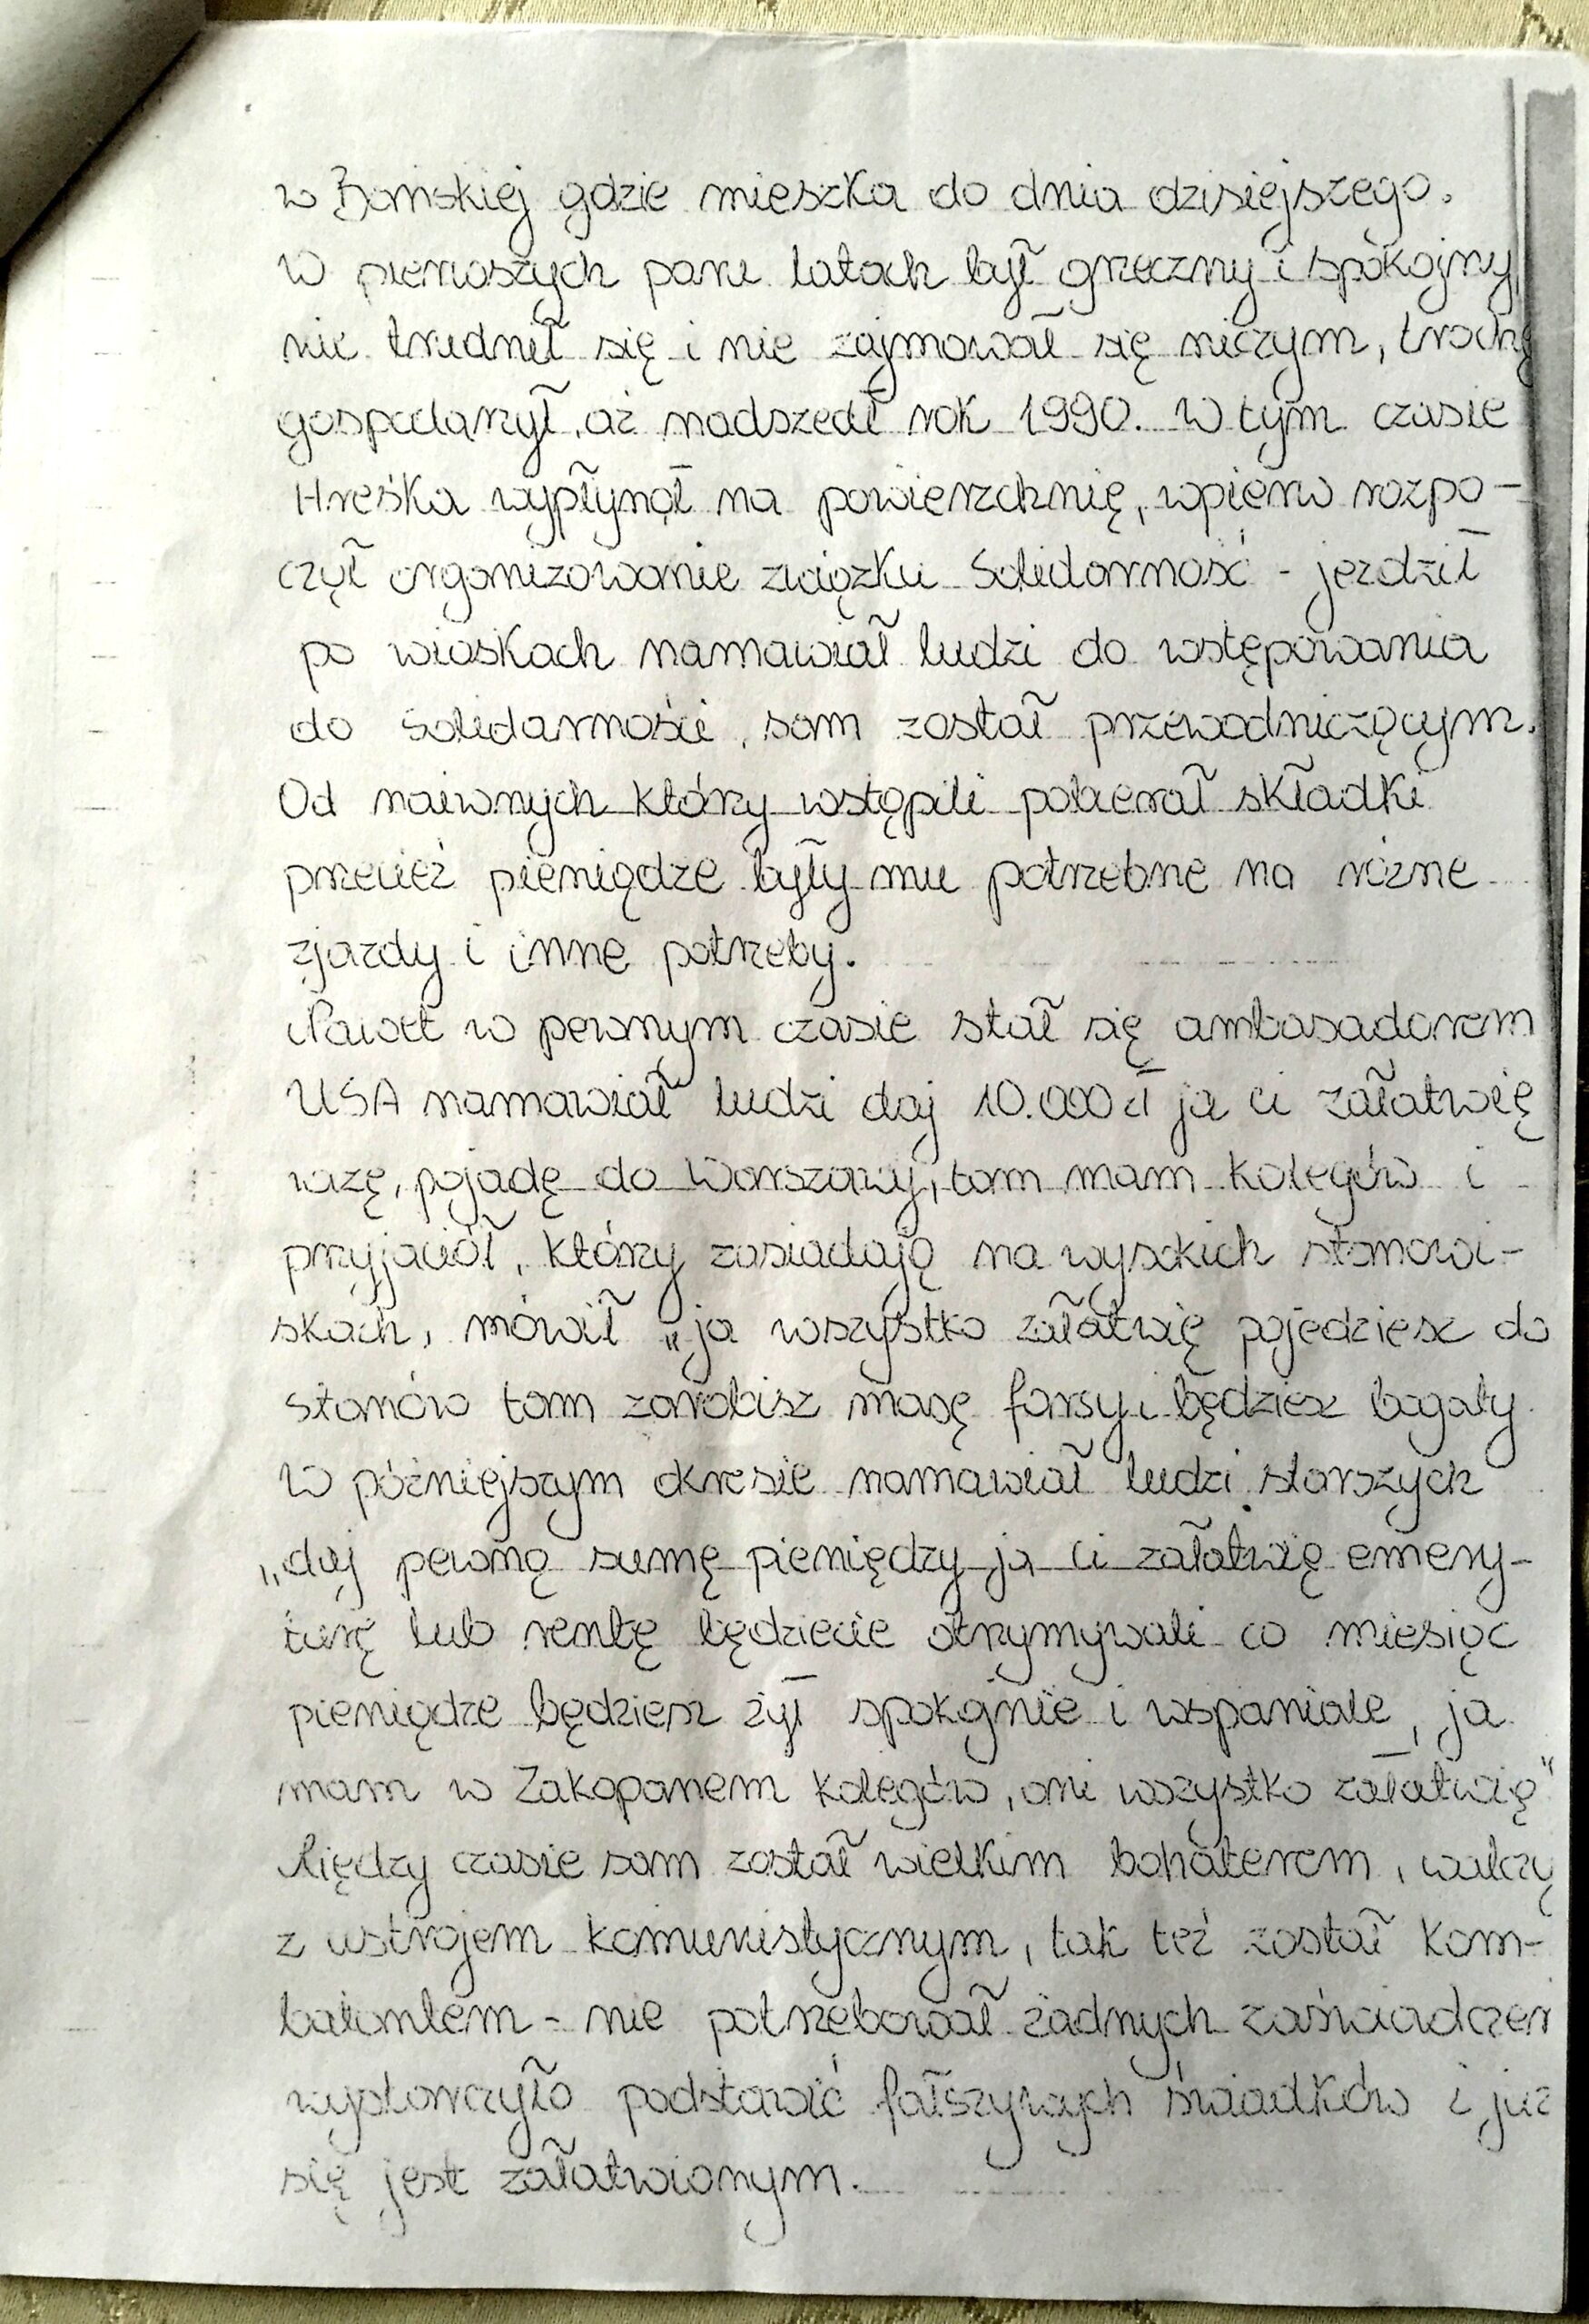 w Bańskiej gdzie mieszka do dnia dzisiejszego.
W pierwszych paru latach był grzeczny i spokojny,
nie trudnił się i nie zajmował się niczym, trochę
gospodarzył, aż nadszedł rok 1990. W tym czasie
Hreśka wypłynął na powierzchnię, wpierw rozpo-
czął organizowanie związku Solidarność - jeździł
po wioskach namawiał ludzi do wstępowania
do Solidarności, sam został przewodniczącym.
Od naiwnych którzy wstąpili pobierał składki
przecież pieniądze były mu potrzebne na różne
zjazdy i inne potrzeby.
Paweł w pewnym czasie stał się ambasadorem
USA namawiał ludzi daj 10.000 zł ja ci załatwię
wizę, pojadę do Warszawy, tam mam kolegów i
przyjaciół, którzy zasiadają na wysokich stanowi-
skach, mówił „ja wszystko załatwię pojedziesz do
stanów tam zarobisz masę forsy i będziesz bogaty
W późniejszym okresie namawiał ludzi starszych
„daj pewną sumę pieniędzy ja ci załatwię emery-
turę lub rentę będziecie otrzymywali co miesiąc
pieniądze będziesz żył spokojnie i wspaniale, ja
mam w Zakopanem kolegów, oni wszystko załatwią"
Między czasie sam został wielkim bohaterem, walczy
z ustrojem komunistycznym, tak też został kom-
batantem - nie potrzebował żadnych zaświadczeń
wystarczyło podstawić fałszywych świadków i już
się jest załatwionym.